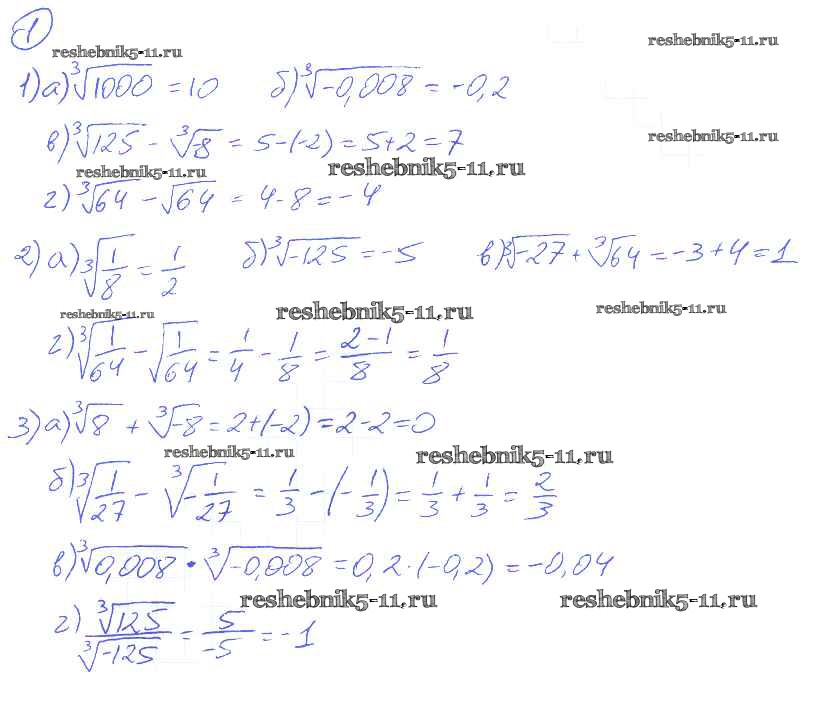 1
reshebnik5-11.ru reshebnik5-11.ru
1) а) ∛1000 = 10 б) ∛-0,008 = -0,2
в) ∛125 - ∛-8 = 5-(-2) = 5+2 = 7 reshebnik5-11.ru
reshebnik5-11.ru reshebnik5-11.ru
г) ∛64 - √64 = 4-8 = -4
2) а) ∛1/8 = 1/2 б) ∛-125 = -5 в) ∛-27 + ∛64 = -3+4 = 1
reshebnik5-11.ru reshebnik5-11.ru reshebnik5-11.ru
г) ∛1/64 - √1/64 = 1/4 - 1/8 = 2-1/8 = 1/8
3) а) ∛8 + ∛-8 = 2+(-2) = 2-2 = 0
reshebnik5-11.ru reshebnik5-11.ru
б) ∛1/27 - ∛-1/27 = 1/3 - (-1/3) = 1/3 + 1/3 = 2/3
в) ∛0,008 · ∛-0,008 = 0,2·(-0,2) = -0,04
reshebnik5-11.ru reshebnik5-11.ru
г) ∛125/∛-125 = 5/-5 = -1